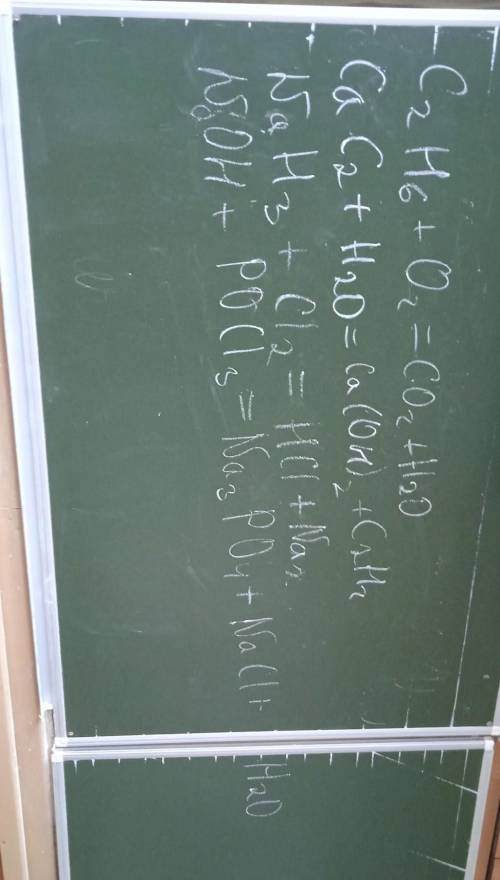 C₂H₆ + O₂ = CO₂ + H₂O
CaC₂ + H₂O = Ca(OH)₂ + C₂H₂
NaH₃ + Cl₂ = HCl + Na₂
NaOH + POCl₃ = Na₃PO₄ + NaCl + H₂O